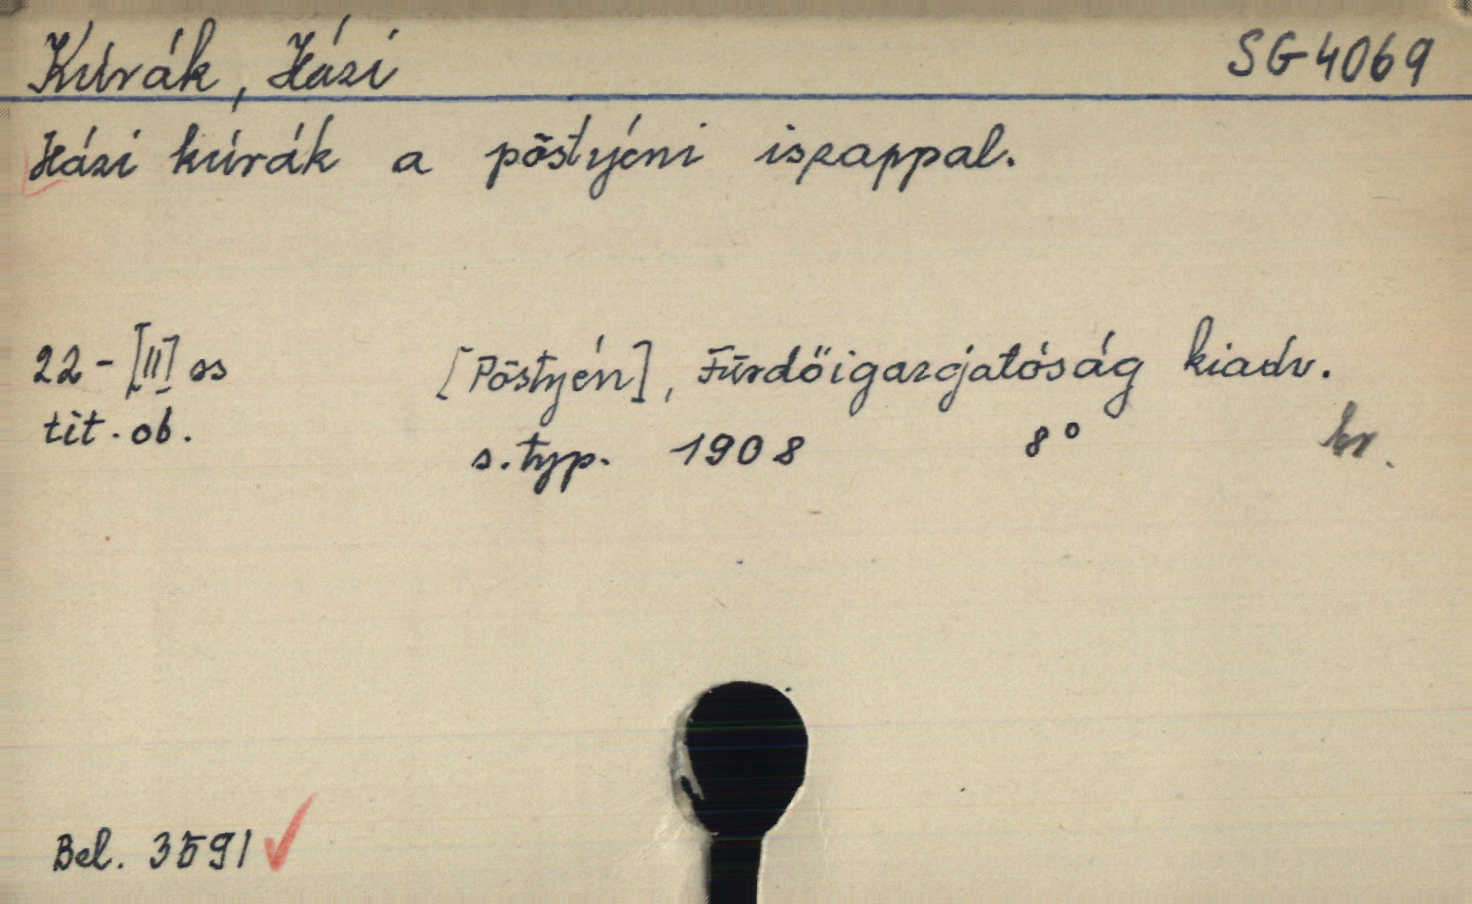 Kúrák, Házi SG 4069
Házi kúrák a pöstyéni iszappal.
22-[II] ss [Pöstyén], Fürdőigazgatóság kiadv.
tit. ob. s. typ. 1908 8° br.
Bel. 3591